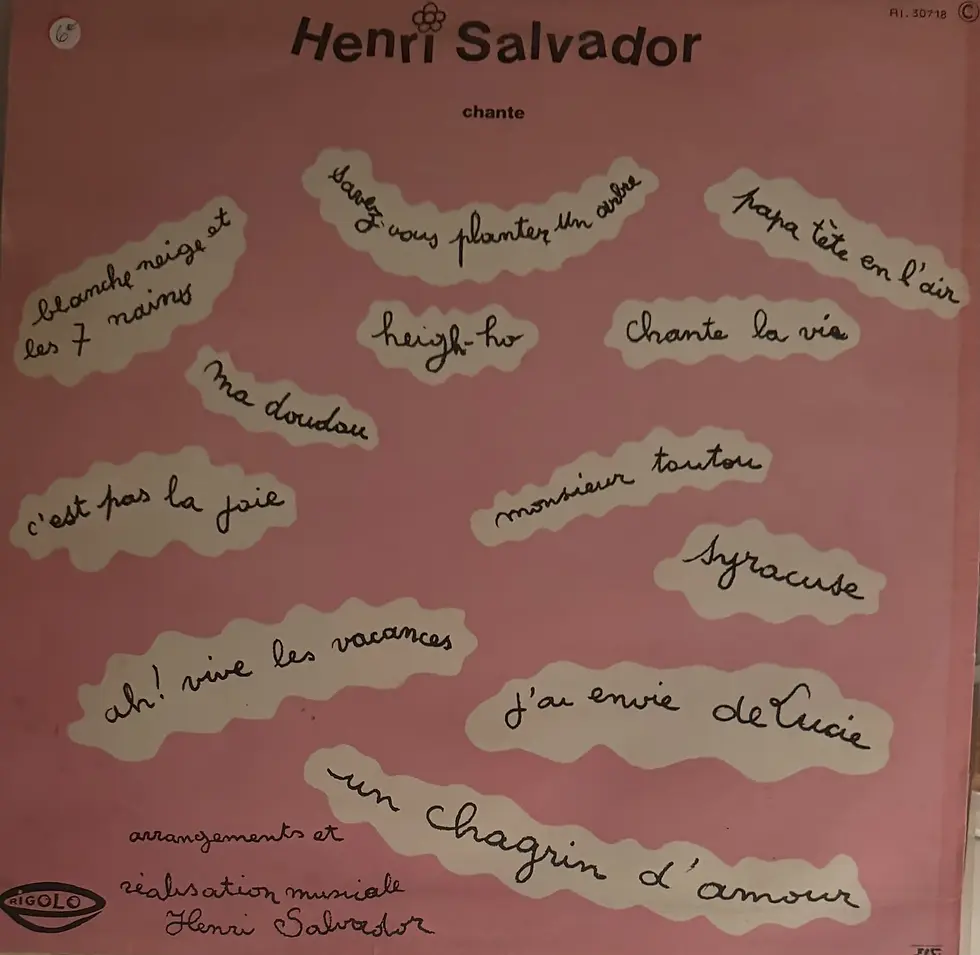 6€
RI. 30718 C
Henri Salvador
chante
savez-vous planter un arbre
papa tête en l'air
blanche neige et
les 7 nains
heigh-ho
chante la vie
ma doudou
c'est pas la joie
monsieur toutou
syracuse
ah! vive les vacances
j'ai envie de Lucie
un chagrin d'amour
arrangements et
réalisation musicale
Henri Salvador
RIGOLO